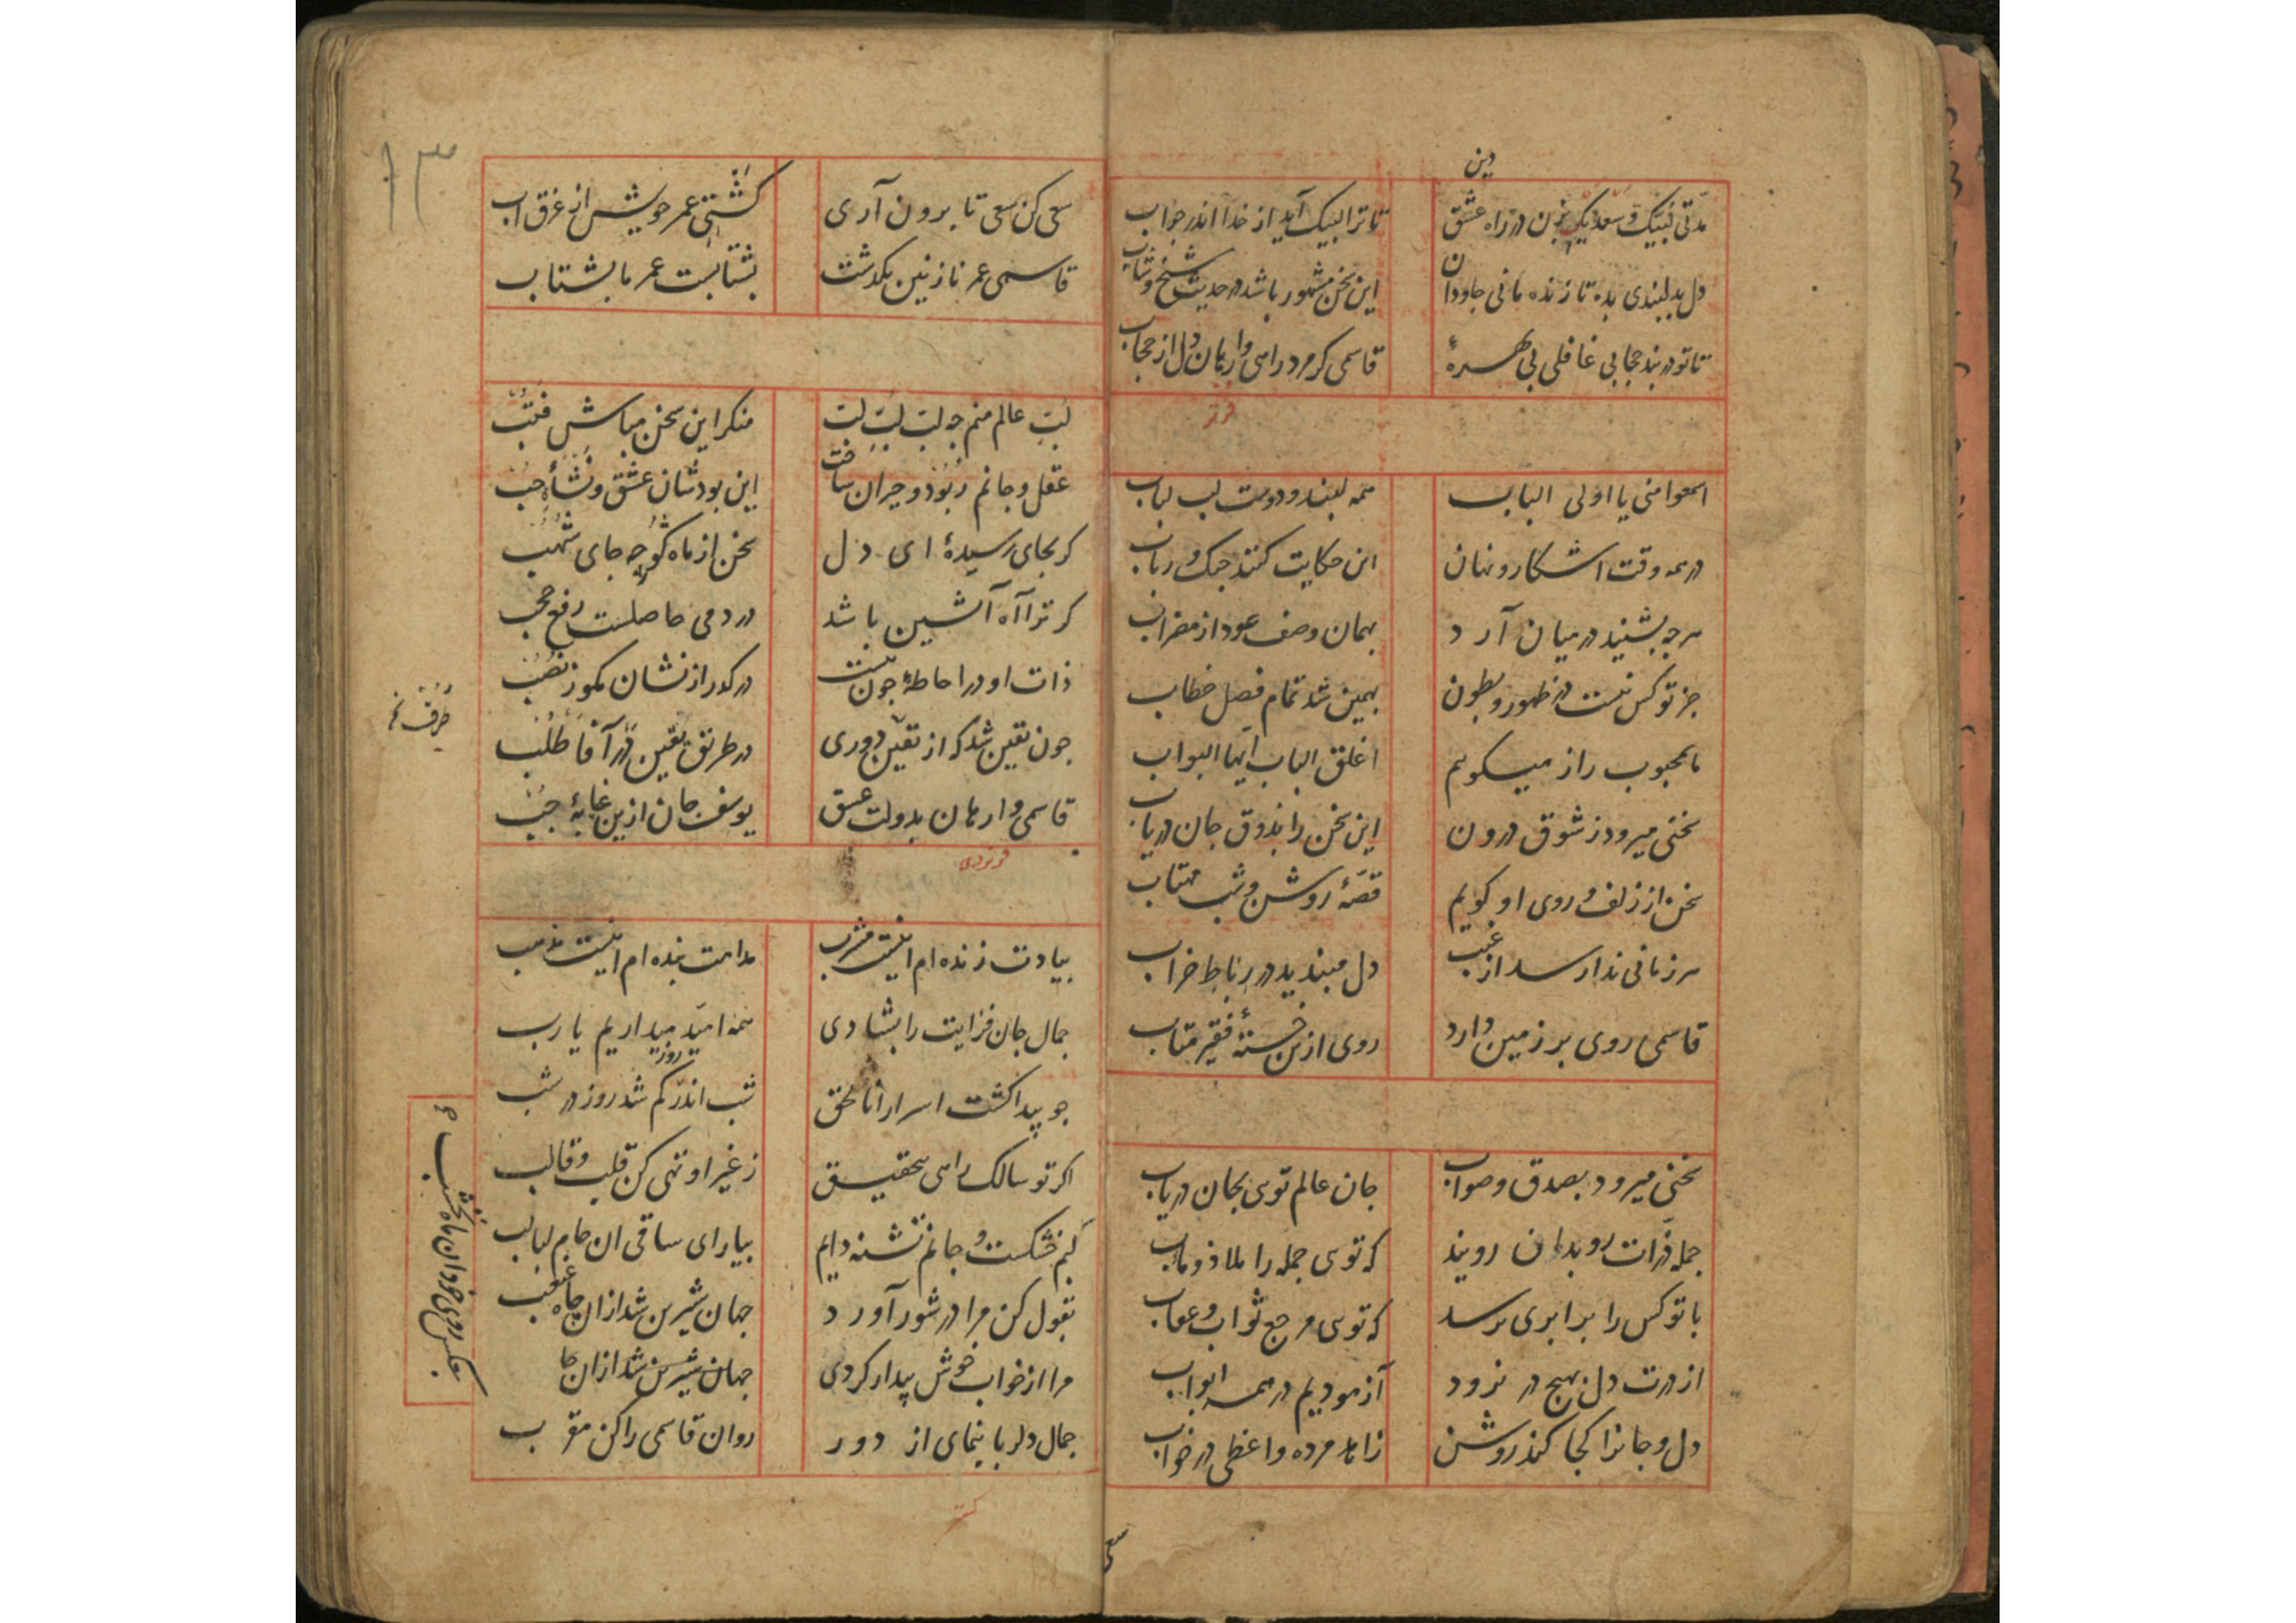 دین
مدتی لبیک و سعدیک بزن در راه عشق
تا ترا لبیک آید از خدا اندر جواب
دل بدلبندی بده تا زنده مانی جاودان
این سخن مشهور باشد در حدیث شیخ و شاب
تا تو در بند حجابی غافلی بی بهرهٔ
قاسمی کر مرد راهی وارهان دل از حجاب
اسمعوا منی یا اولی الالباب
همه لبند و دوست لب لباب
در همه وقت اشکار و نهان
این حکایت کنند چنک و رباب
هرچه بشنید در میان آرد
بهمان وصف عود از مضراب
جز تو کس نیست در ظهور و بطون
بهمین شد تمام فصل خطاب
با محبوب راز میکویم
اغلق الباب ایها البواب
سخنی میرود ز شوق درون
این سخن را بذوق جان دریاب
سخن از زلف و روی او کویم
قصهٔ روشن و شب مهتاب
هر زمانی ندا رسد از غیب
دل مبندید در رباط خراب
قاسمی روی بر زمین دارد
روی ازین خستهٔ فقیر متاب
سخنی میرود بصدق و صواب
جان عالم توی بجان دریاب
جمله ذرات رو بدان رویند
که توی جمله را ملاذ و مآب
با تو کس را برابری نرسد
که توی مرجع ثواب و عقاب
از درت دل بهیچ در نرود
آزمودیم در همه ابواب
دل و جانرا کجا کند روشن
زاهد مرده واعظی در خواب
سعی
۱۳
سعی کن سعی تا برون آری
کشتی عمر خویش از غرقاب
قاسمی عمر نازنین بکذشت
بشتابست عمر ما بشتاب
لب عالم منم چه لب لب لب
منکر این سخن مباش فتب
عقل و جانم ربود و حیران ساخت
این بود شان عشق و نشأه حب
کر بجای رسیدهٔ ای دل
سخن از ماه کو چه جای شهب
کر ترا آه آتشین باشد
در دمی حاصلست رفع حجب
ذات او در احاطهٔ چون نیست
درکدر از نشان مکو ز نصب
چون یقین شد که از تعین دوری
در طریق یقین درآ فاطلب
قاسمی وارهان بدولت عشق
یوسف جان ازین غیابهٔ جب
بیادت زنده ام اینست مشرب
مدامت بنده ام اینست مذهب
جمال جان فزایت را بشادی
همه امید میداریم یا رب
چو پیدا کشت اسرار انا الحق
شب اندر روز کم شد روز در شب
اکر تو سالک راهی بتحقیق
ز غیر او تهی کن قلب و قالب
لبم خشکست و جانم تشنه دایم
بیار ای ساقی ان جام لبالب
بقول کن مرا در شور آورد
جهان شیرین شد از ان چاه غبغب
مرا از خواب خوش بیدار کردی
جهان شیرین شد از ان
جمال دلربا بنمای از دور
روان قاسمی را کن مقرب